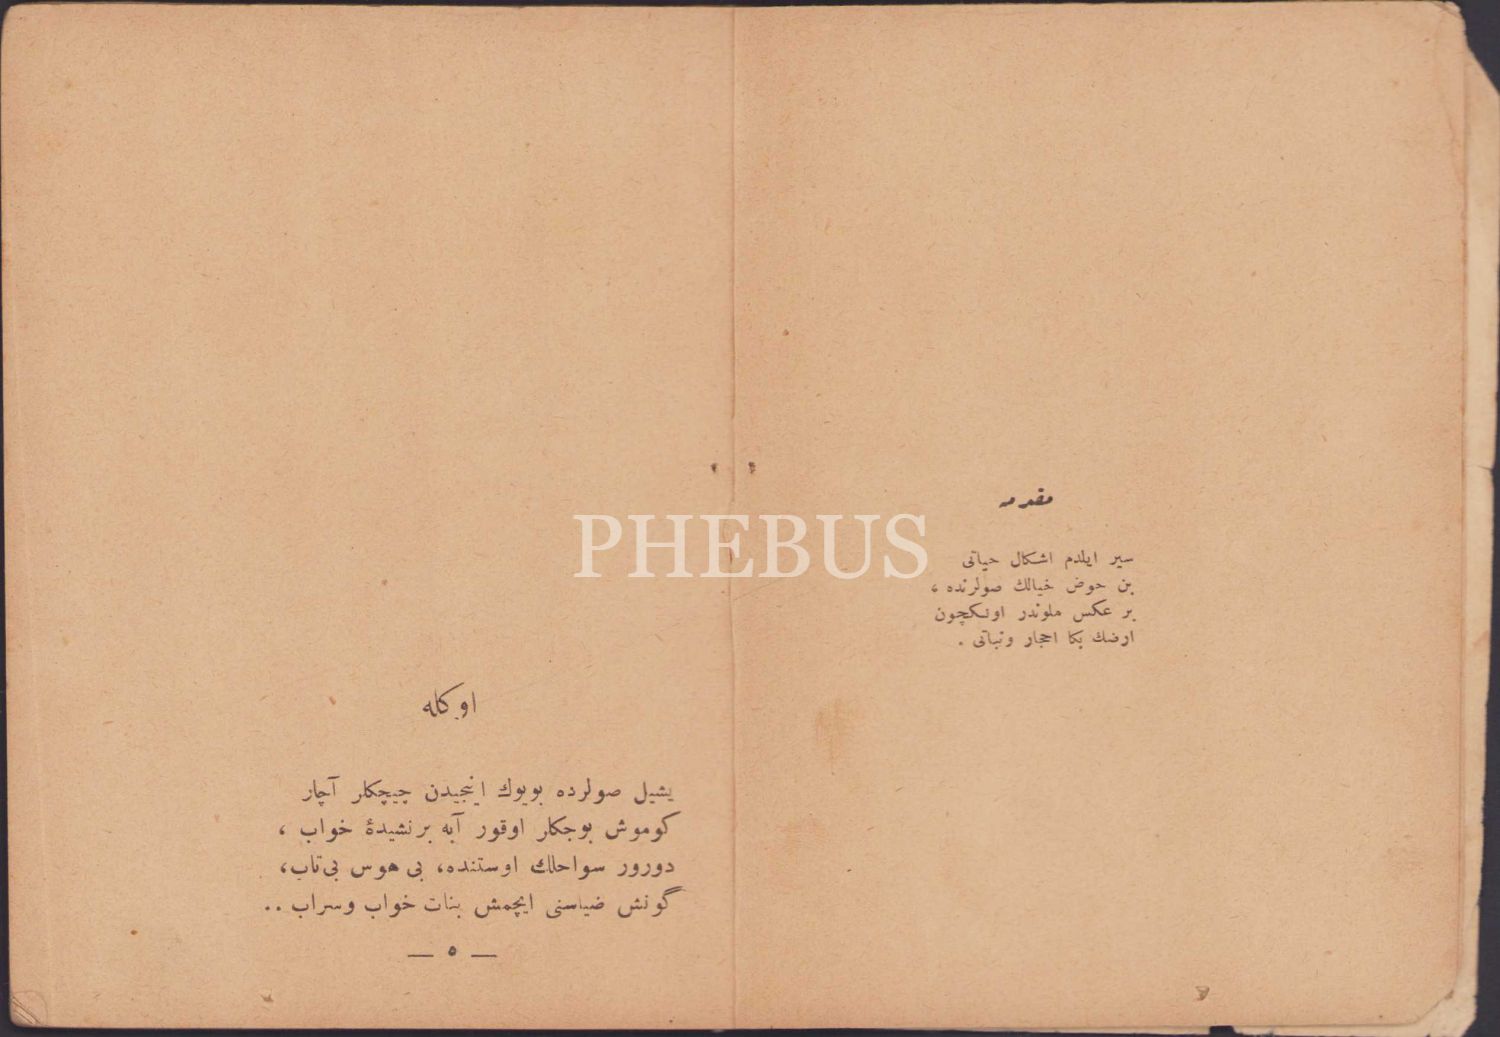 مقدمه
سير ايلدم اشكال حياتى
بن حوض خيالك صولرنده ،
بر عكس ملوندر اونكچون
ارضك بكا احجار ونباتى .
اوكله
يشيل صولرده بويوك اينجيدن چيچكلر آچار
كوموش بوجكلر اوقور آبه بر نشيدۀ خواب ،
دورور سواحلك اوستنده، بى هوس بى تاب،
گونش ضياسنى ايچمش بنات خواب وسراب ..
— ٥ —
PHEBUS